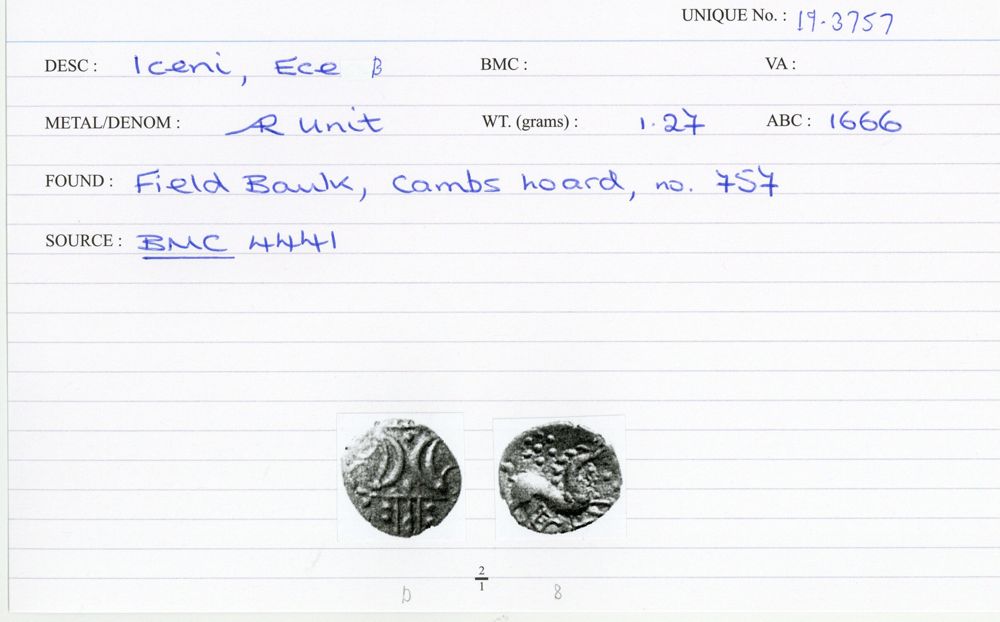 UNIQUE No. : 19.3757
DESC : Iceni, Ece B BMC : VA :
METAL/DENOM : AR Unit WT. (grams) : 1.27 ABC : 1666
FOUND : Field Baulk, Cambs hoard, no. 757
SOURCE : BMC 4441
2
1
D 8